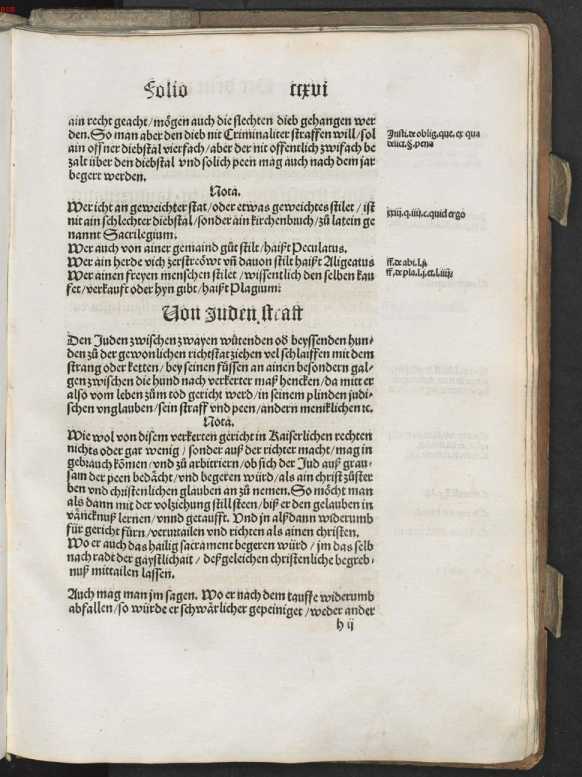 Folio ccxvi
ain recht geacht/mögen auch die slechten dieb gehangen wer
den. So man aber den dieb nit Criminaliter straffen will/sol
ain offner diebstal vierfach/aber der nit offentlich zwifach be
zalt über den diebstal vnd solich peen mag auch nach dem jar
begert werden.
Insti. de oblig. que. ex qua
delict. §. pena
Nota.
Wer icht an geweichter stat/oder etwas geweichtes stilet/ist
nit ain schlechter diebstal/sonder ain kirchenbruch/zů latein ge
nannt Sacrilegium.
xxiij. q. iiij. c. quid ergo
Wer auch von ainer gemaind gůt stilt/haißt Peculatus.
Wer ain herde vich zerströwt vñ dauon stilt haißt Aligeatus
Wer ainen freyen menschen stilet/wissentlich den selben kau
fet/verkauft oder hyn gibt/haißt Plagium:
ff. de abi. l. j.
ff. de pla. l. j. et. l. iiij.
Von Juden straff
Den Juden zwischen zwayen wůtenden oð beyssenden hun-
den zů der gewonlichen richtstat ziehen vel schlaiffen mit dem
strang oder ketten/bey seinen fůssen an ainen besondern gal-
gen zwischen die hund nach verkerter maß hencken/da mit er
also vom leben zům tod gericht werd/in seinem plinden judi-
schen vnglauben/sein straff vnd peen/andern meniklichen ec.
Nota.
Wie wol von disem verkerten gericht in Kaiserlichen rechten
nichts oder gar wenig/sonder auß der richter macht/mag in
gebrauch kömen/vnd zů arbitriern/ob sich der Jud auß grau-
sam der peen bedächt/vnd begeren würd/als ain christ zůster
ben vnd christenlichen glauben an zů nemen. So möcht man
als dann mit der volziehung still steen/biß er den gelauben in
väncknuß lernen/vnnd getaufft. Vnd jn alßdann widerumb
für gericht fürn/verurtailen vnd richten als ainen christen.
Wo er auch das hailig sacrament begeren würd/jm das selb
nach radt der gaystlichait/deßgeleichen christenliche begreb-
nuß mittailen lassen.
Auch mag man jm sagen. Wo er nach dem tauffe widerumb
abfallen/so würde er schwärlicher gepeiniget/weder ander
h ij